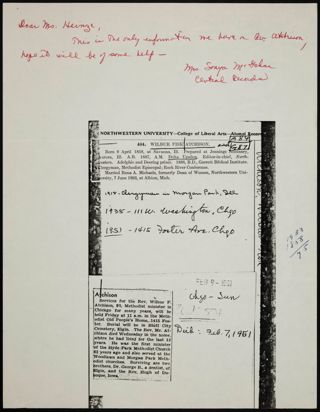 Dear Ms. Heinze,
This is the only information we have on Rev. Atchison,
hope it will be of some help —
Mrs. Sonya
Central Records
NORTHWESTERN UNIVERSITY—College of Liberal Arts—Alumni Record
404. WILBUR FISK ATCHISON,
Born 9 April 1858, at Savanna, Ill. Prepared at Jennings Seminary,
Aurora, Ill. A.B. 1887, A.M. Delta Upsilon. Editor-in-chief, North-
western. Adelphic and Deering prizes. 1888, B.D., Garrett Biblical Institute.
Clergyman, Methodist Episcopal; Rock River Conference.
Married Rena A. Michaels, formerly Dean of Women, Northwestern Univer-
sity, 7 June 1893, at Albion, Mich.
1915 - Clergyman in Morgan Park, Ill
1935 - 111 W. Washington, Chgo
1951 - 1415 Foster Ave. Chgo
1951
Chgo - Sun
Died: Feb. 7, 1951
Atchison
Services for the Rev. Wilbur F.
Atchison, 92, Methodist minister in
Chicago for many years, will be
held Friday at 11 a.m. in the Meth-
odist Old People's Home, 1415 Fos-
ter. Burial will be in Bluff City
Cemetery, Elgin. The Rev. Mr. At-
chison died Wednesday in the home
where he had lived for the last 12
years. He was the first minister
of the Hyde Park Methodist Church
62 years ago and also served at the
Woodlawn and Morgan Park Method-
ist churches. Surviving are two
brothers, Dr. George B., a dentist, of
Elgin, and the Rev. Hugh of Du-
buque, Iowa.